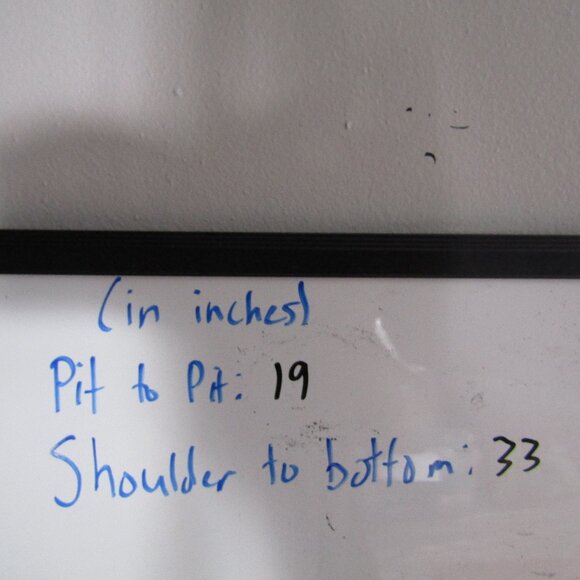 (in inches)
Pit to Pit: 19
Shoulder to bottom: 33